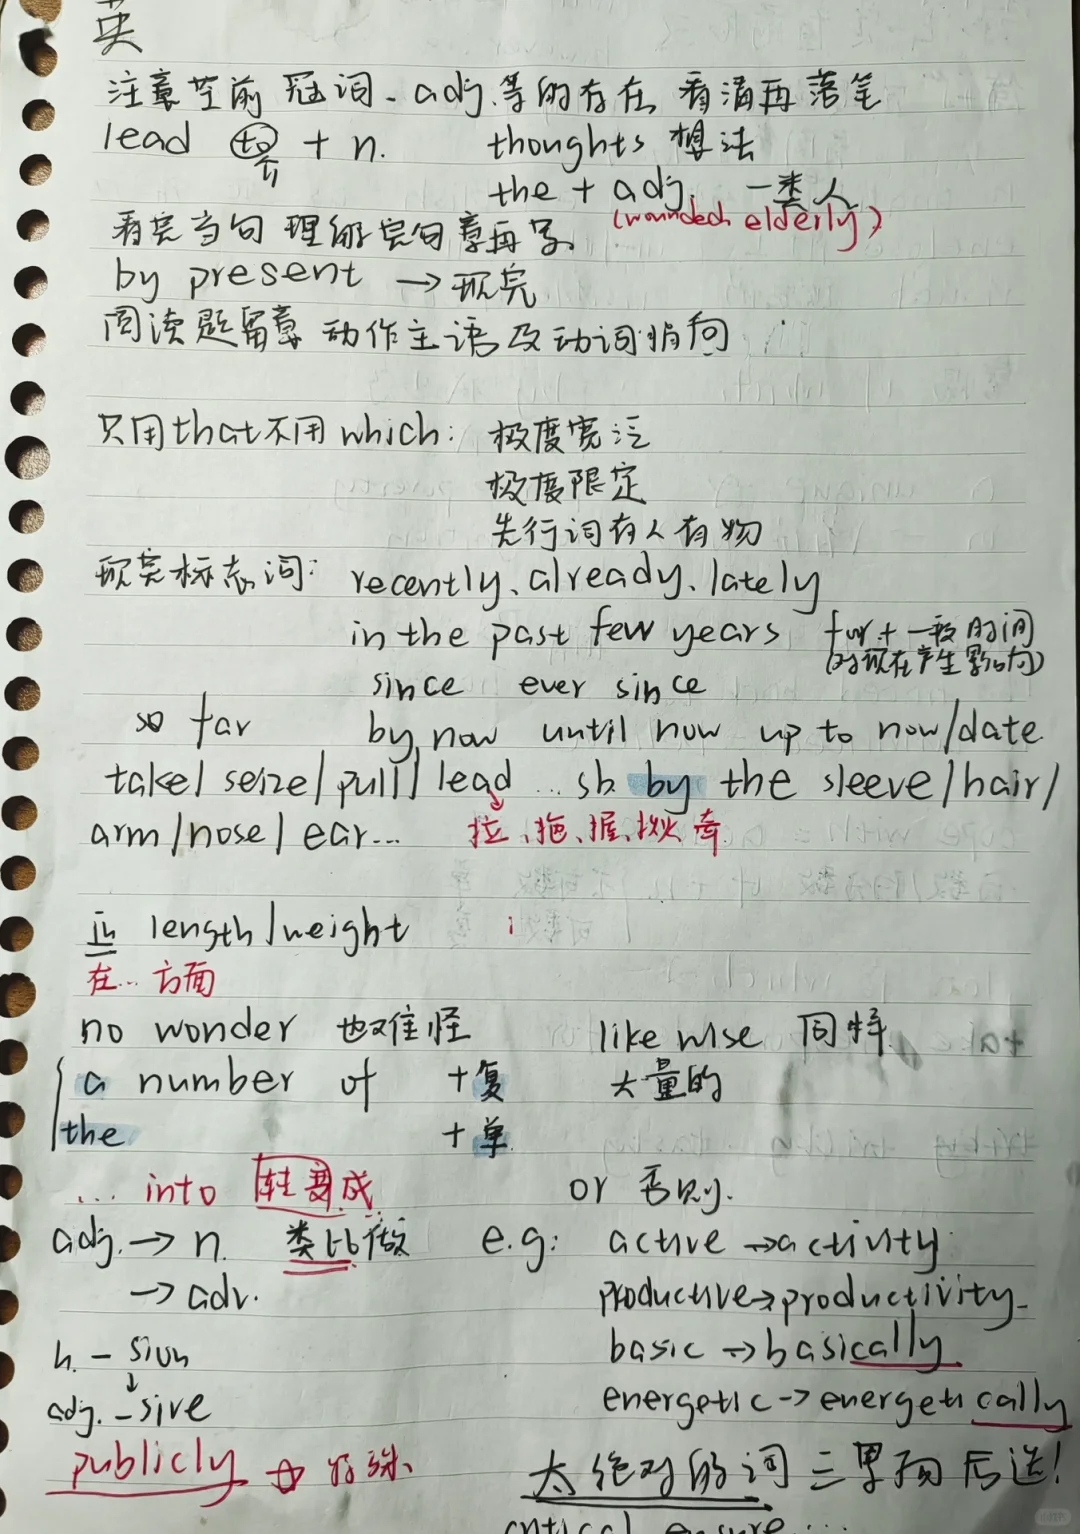 英
注意空前冠词、adj.等的存在 看清再落笔
lead to介 + n. thoughts 想法
the + adj. 一类人
(wounded elderly)
看完当句 理解完句意再写
by present → 现完
阅读题留意 动作主语及动词指向
只用that不用which: 极度宽泛
极度限定
先行词有人有物
现完标志词: recently、already、lately
in the past few years for + 一段时间
(对现在产生影响)
since ever since
so far by now until now up to now/date
take/ seize/ pull/ lead ... sb. by the sleeve/hair/
arm/nose/ ear... 拉、拖、握、揪、牵
in length/weight
在...方面
no wonder 也难怪 likewise 同样
a number of +复 大量的
the +单
... into 转变成 or 否则.
adj. → n. 类比做 e.g: active → activity
→ adv. productive → productivity
n. - sion basic → basically
↓
adj. - sive energetic → energetically
publicly → 特殊、
太绝对的词 三思而后选!
critical ensure ...